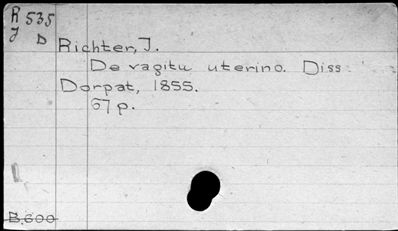 R 535
J D
Richter, J.
De vagitu uterino. Diss
Dorpat, 1855.
67 p.
B.600